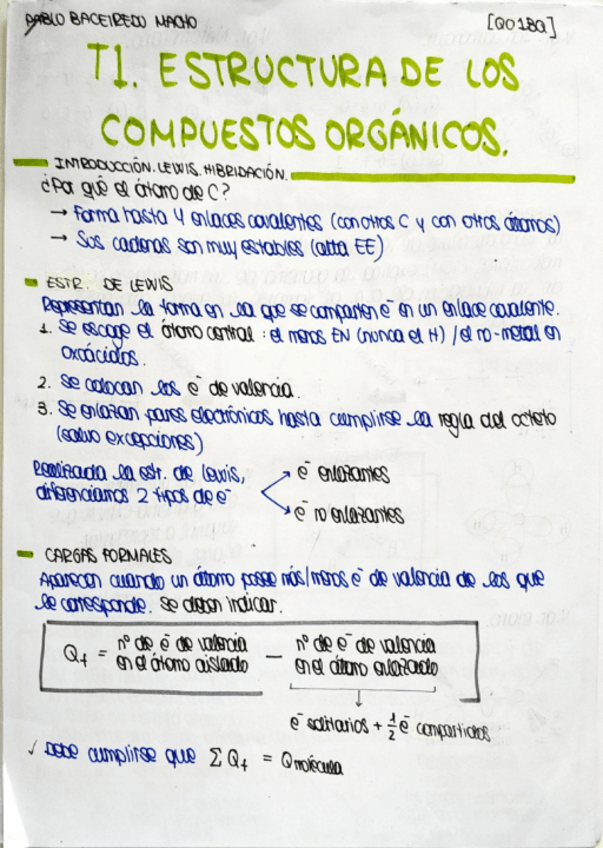 PABLO BACEIREDO MACHO [QO1BQ]
T1. ESTRUCTURA DE LOS
COMPUESTOS ORGÁNICOS.
INTRODUCCIÓN. LEWIS. HIBRIDACIÓN.
¿Por qué el átomo de C?
→ Forma hasta 4 enlaces covalentes (con otros C y con otros átomos)
→ Sus cadenas son muy estables (alta EE)
- ESTR. DE LEWIS
Representan la forma en la que se comparten e⁻ en un enlace covalente.
1. Se escoge el átomo central: el menos EN (nunca el H) / el no-metal en
oxácidos.
2. Se colocan los e⁻ de valencia.
3. Se enlazan pares electrónicos hasta cumplirse la regla del octeto
(salvo excepciones)
Realizada la estr. de Lewis, → e⁻ enlazantes
diferenciamos 2 tipos de e⁻ → e⁻ no enlazantes
- CARGAS FORMALES
Aparecen cuando un átomo posee más/menos e⁻ de valencia de los que
le corresponde. Se deben indicar.
Qf = nº de e⁻ de valencia en el átomo aislado − nº de e⁻ de valencia en el átomo enlazado
e⁻ solitarios + 1/2 e⁻ compartidos
✓ Debe cumplirse que ΣQf = Qmolécula